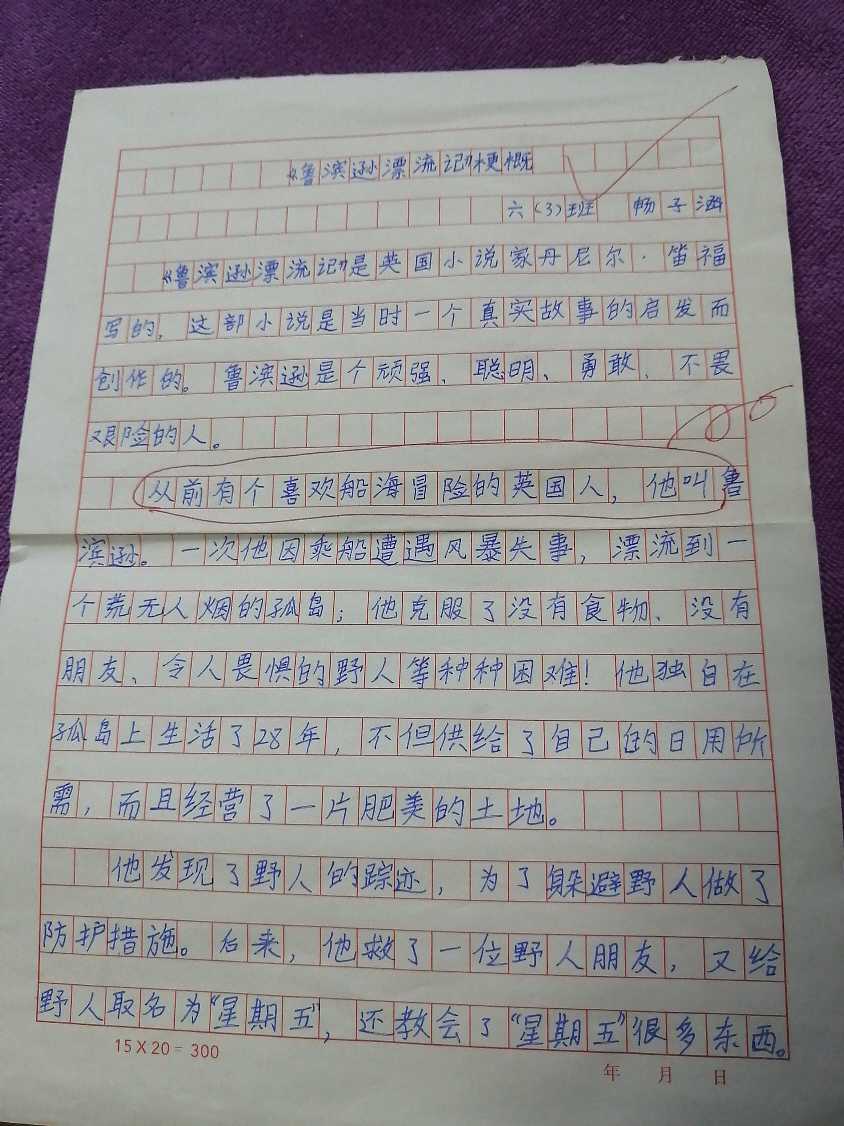 《鲁滨逊漂流记》梗概
六(3)班 畅子涵
《鲁滨逊漂流记》是英国小说家丹尼尔·笛福
写的,这部小说是当时一个真实故事的启发而
创作的。鲁滨逊是个顽强、聪明、勇敢、不畏
艰险的人。
从前有个喜欢船海冒险的英国人,他叫鲁
滨逊。一次他因乘船遭遇风暴失事,漂流到一
个荒无人烟的孤岛;他克服了没有食物、没有
朋友、令人畏惧的野人等种种困难!他独自在
孤岛上生活了28年,不但供给了自己的日用所
需,而且经营了一片肥美的土地。
他发现了野人的踪迹,为了躲避野人做了
防护措施。后来,他救了一位野人朋友,又给
野人取名为“星期五”,还教会了“星期五”很多东西。
15X20=300
年 月 日